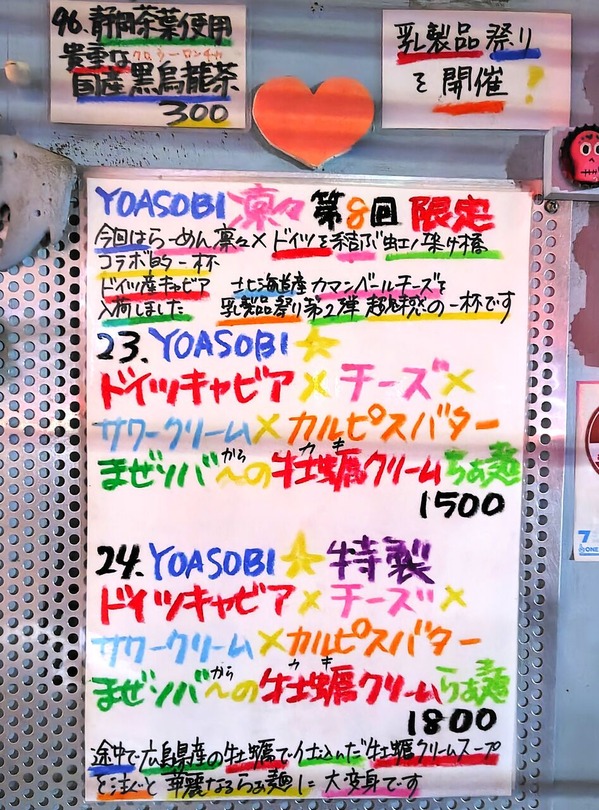 96.静岡茶葉使用
貴重な クロウーロンチャ
国産黒烏龍茶
300
乳製品祭り
を開催!
YOASOBI 凛々 第8回 限定
今回はらーめん凛々×ドイツを結ぶ虹の架け橋
コラボ的一杯
ドイツ産キャビア 北海道産カマンベールチーズを
入荷しました 乳製品祭り第2弾 超魅惑の一杯です
23.YOASOBI☆
ドイツキャビア×チーズ×
サワークリーム×カルピスバター
まぜソバ〜からの牡蠣カキクリームらぁ麺
1500
24.YOASOBI☆特製
ドイツキャビア×チーズ×
サワークリーム×カルピスバター
まぜソバ〜からの牡蠣カキクリームらぁ麺
1800
途中で広島県産の牡蠣で仕込んだ牡蠣クリームスープ
を注ぐと華麗なるらぁ麺に大変身です
7